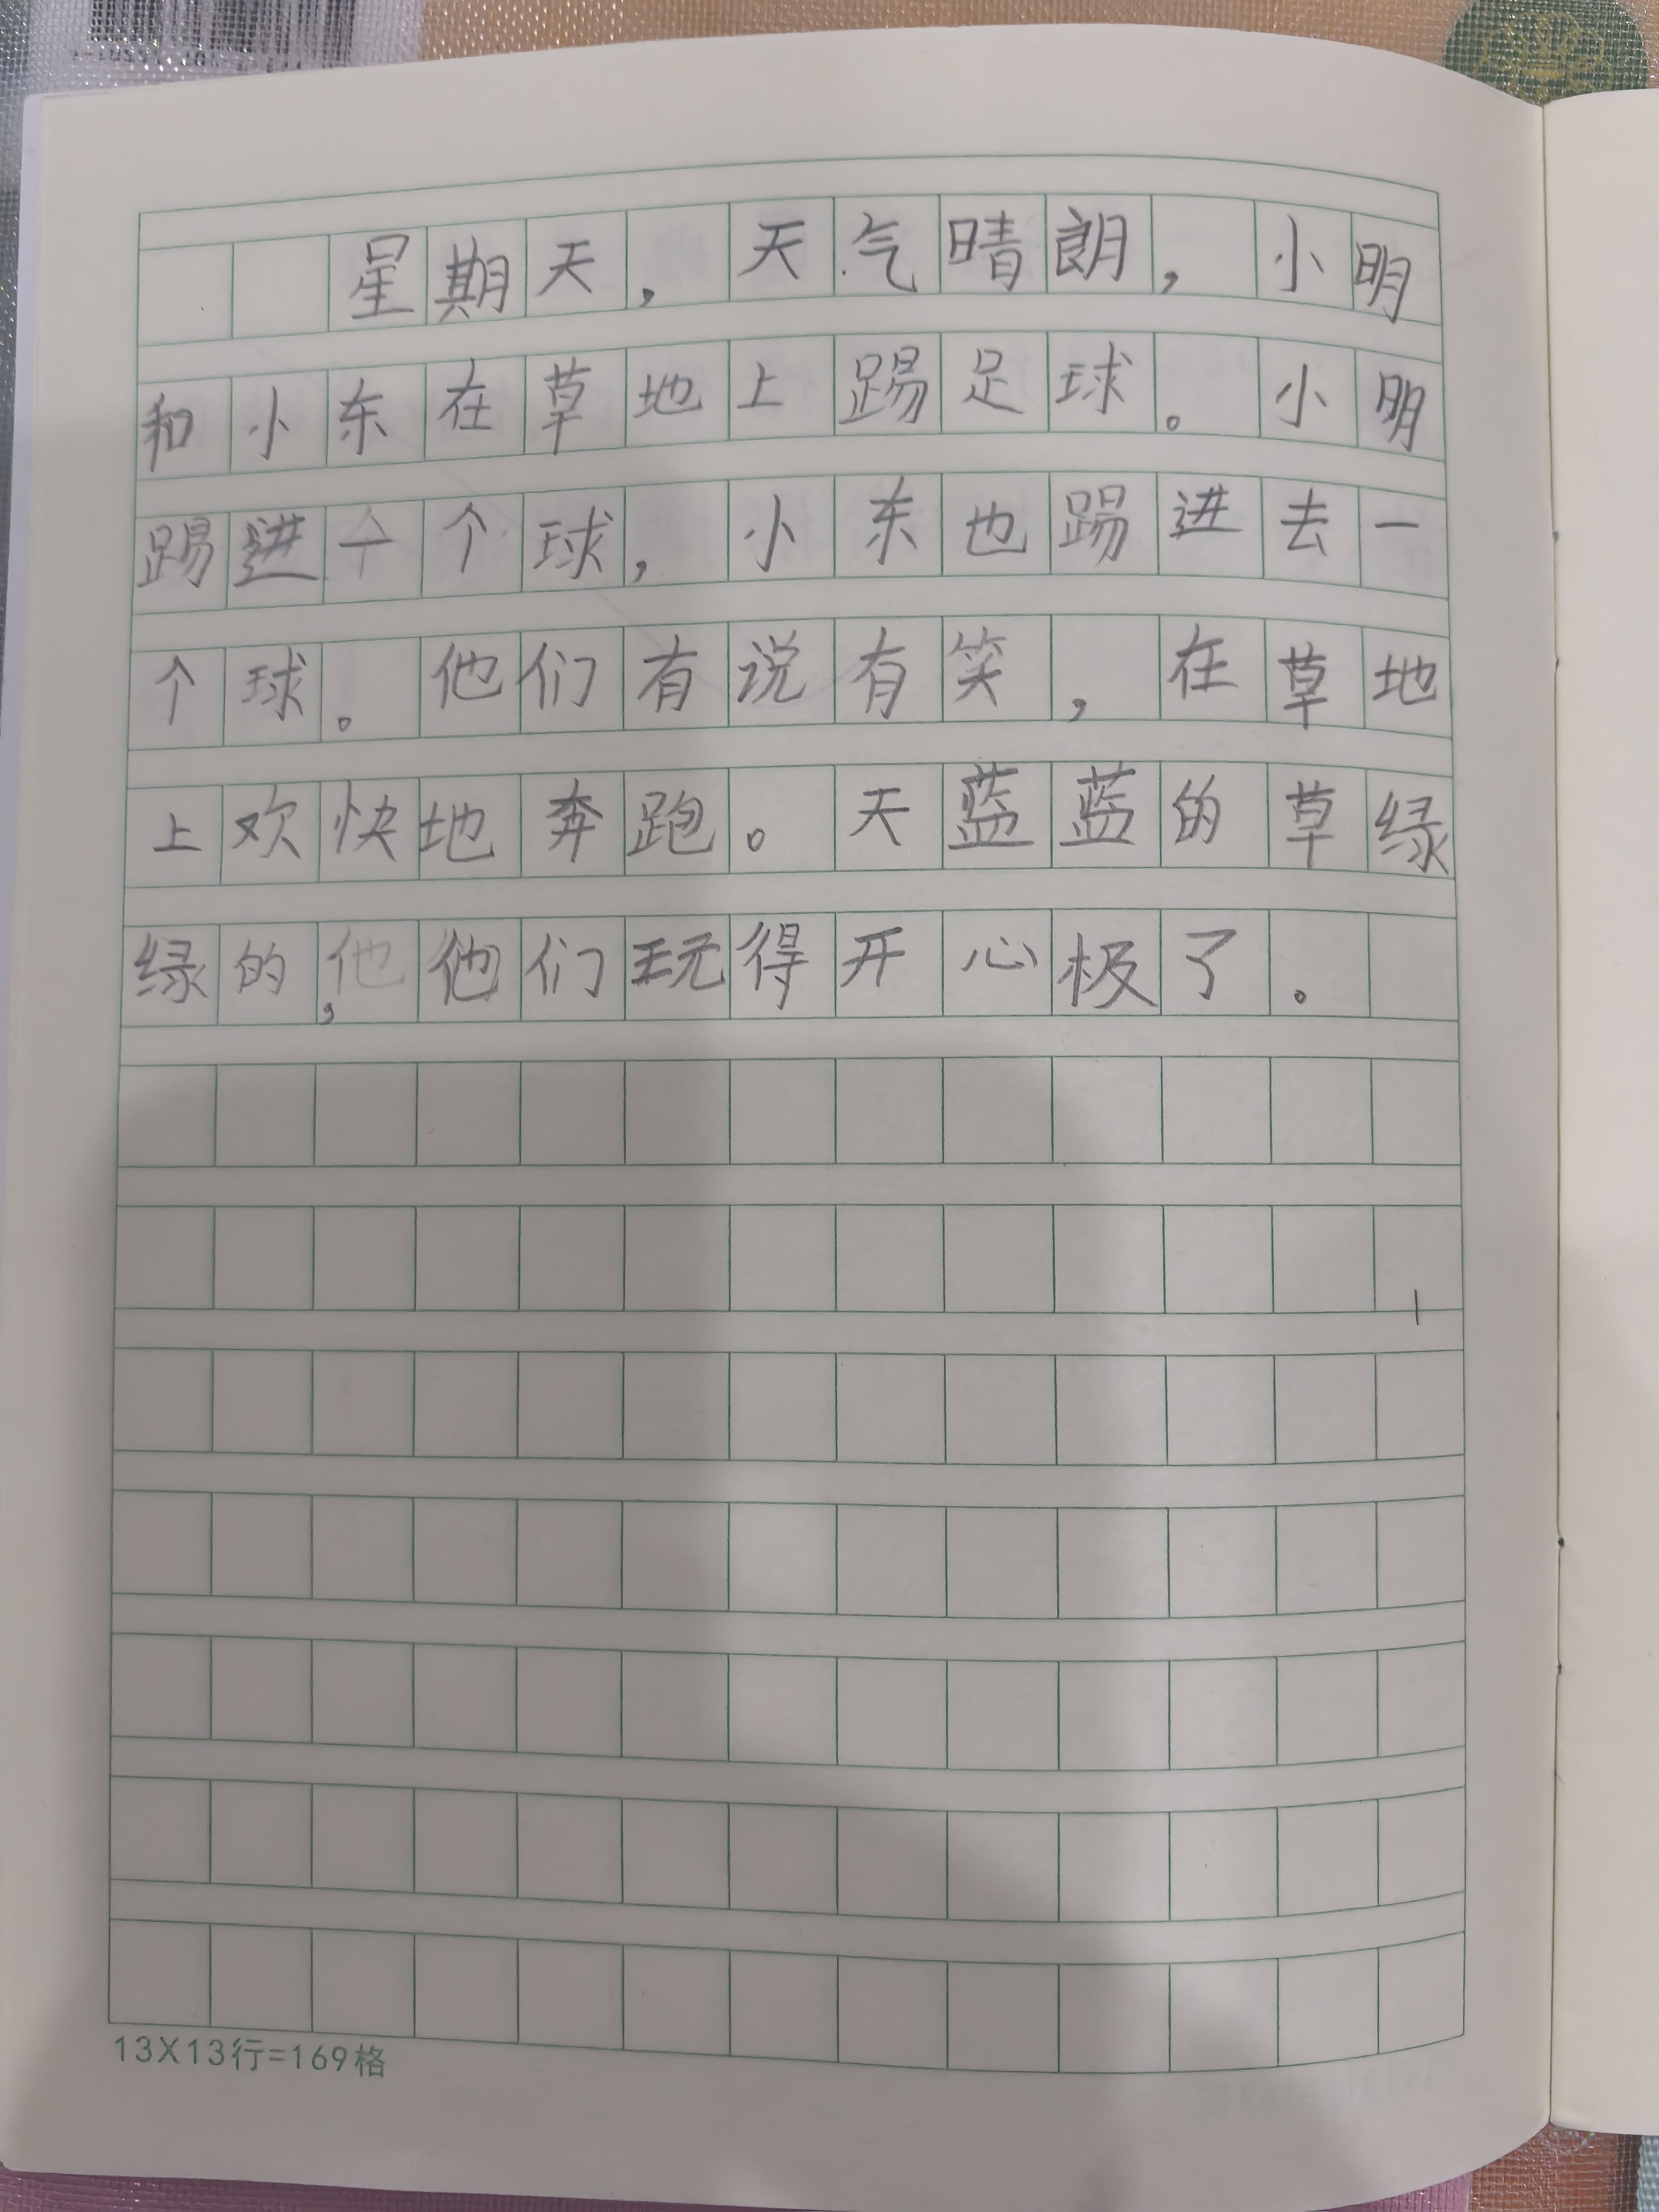 星期天，天气晴朗，小明
和小东在草地上踢足球。小明
踢进一个球，小东也踢进去一
个球。他们有说有笑，在草地
上欢快地奔跑。天蓝蓝的草绿
绿的，他们玩得开心极了。
13X13行=169格